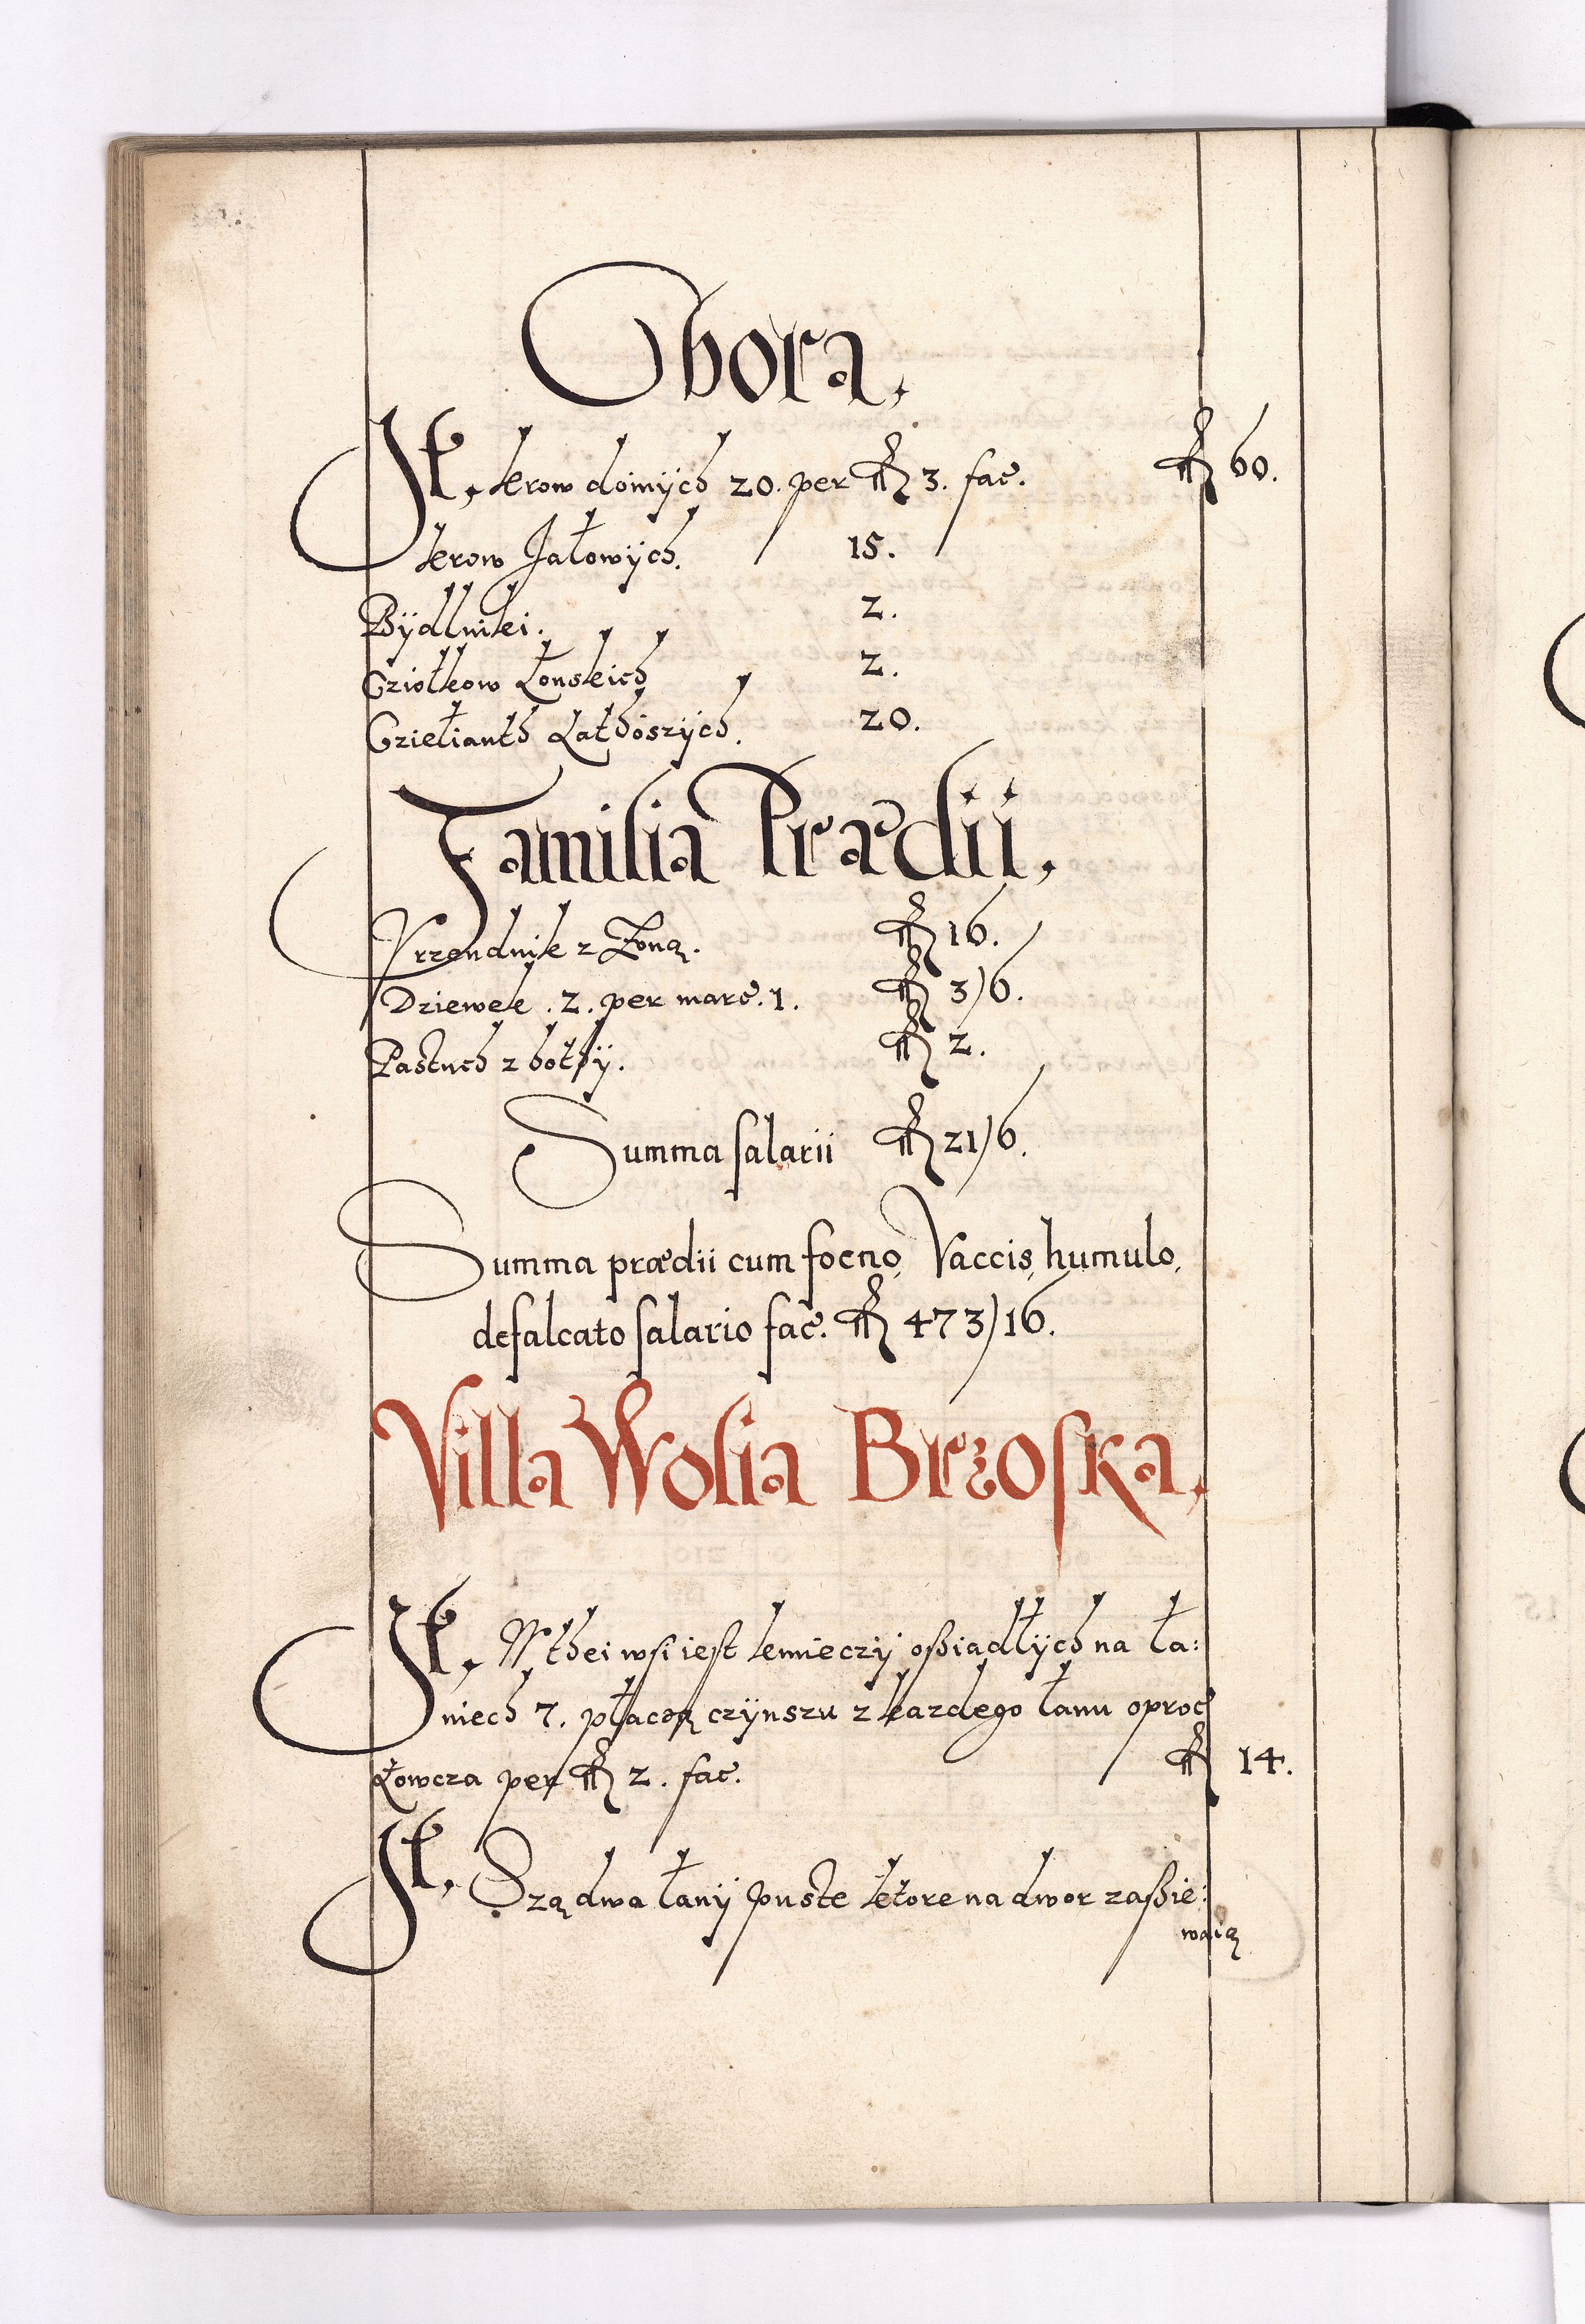 Obora,
It, krow doinÿch 20. per fl 3. fac. fl 60.
krow Jałowÿch. 15.
Bÿdlniki. 2.
Cziołkow Łonskich 2.
Czieliauth Lathószÿch. 20.
Familia Prædii,
Vrzendnik z Żoną. fl 16.
Dziewek . 2. per marc. 1. fl 3)6.
Pastuch z bothÿ. fl 2.
Summa salarii fl 21)6.
Summa prædii cum foeno, Vaccis, humulo,
defalcato salario fac. fl 473)16.
Villa Wolia Brzoska,
It, W thei wsi iest kmieczÿ oßiadłÿch na ła:
niech 7. płaczą czÿnszu z kazdego łanu oprocz
Łowcza per fl 2. fac. fl 14.
It, Szą dwa łanÿ puste ktore na dwor zaßie:
waią